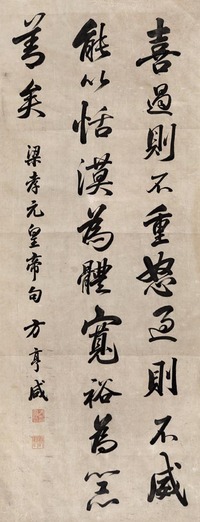 喜過則不重怒過則不威
能以恬漠為體寬裕為器
善矣
梁孝元皇帝句 方亨咸